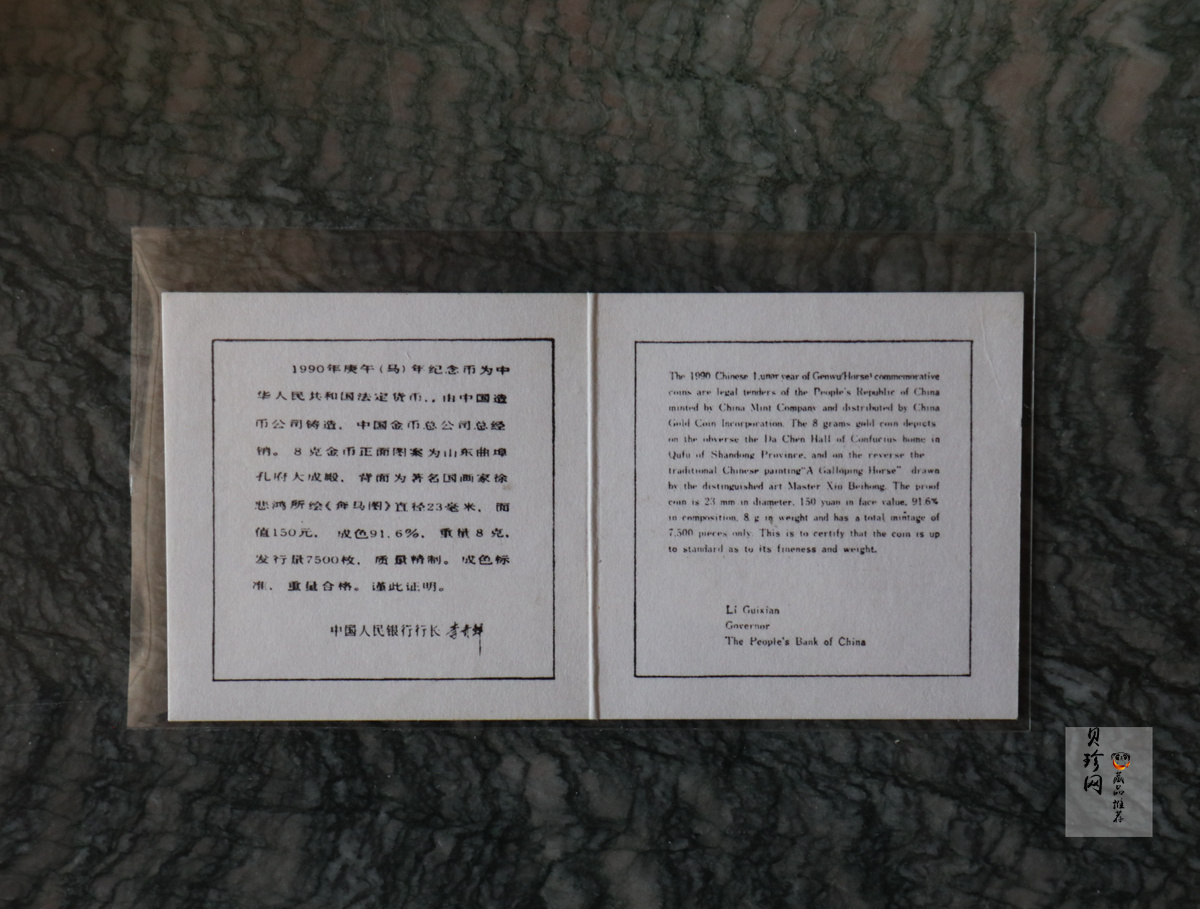 1990年庚午(马)年纪念币为中
华人民共和国法定货币.，由中国造
币公司铸造、中国金币总公司总经
销。8克金币正面图案为山东曲埠
孔府大成殿，背面为著名国画家徐
悲鸿所绘《奔马图》直径23毫米，面
值150元，成色91.6%，重量8克，
发行量7500枚，质量精制。成色标
准，重量合格。谨此证明。
中国人民银行行长 李贵鲜
The 1990 Chinese Lunar year of Genwu(Horse) commemorative
coins are legal tenders of the People's Republic of China
minted by China Mint Company and distributed by China
Gold Coin Incorporation. The 8 grams gold coin depicts
on the obverse the Da Chen Hall of Confucius home in
Qufu of Shandong Province, and on the reverse the
traditional Chinese painting"A Galloping Horse" drawn
by the distinguished art Master Xiu Beihong. The proof
coin is 23 mm in diameter, 150 yuan in face value, 91.6%
in composition, 8 g in weight and has a total mintage of
7,500 pieces only. This is to certify that the coin is up
to standard as to its fineness and weight.
Li Guixian
Governor
The People's Bank of China
贝珍网
藏品推荐